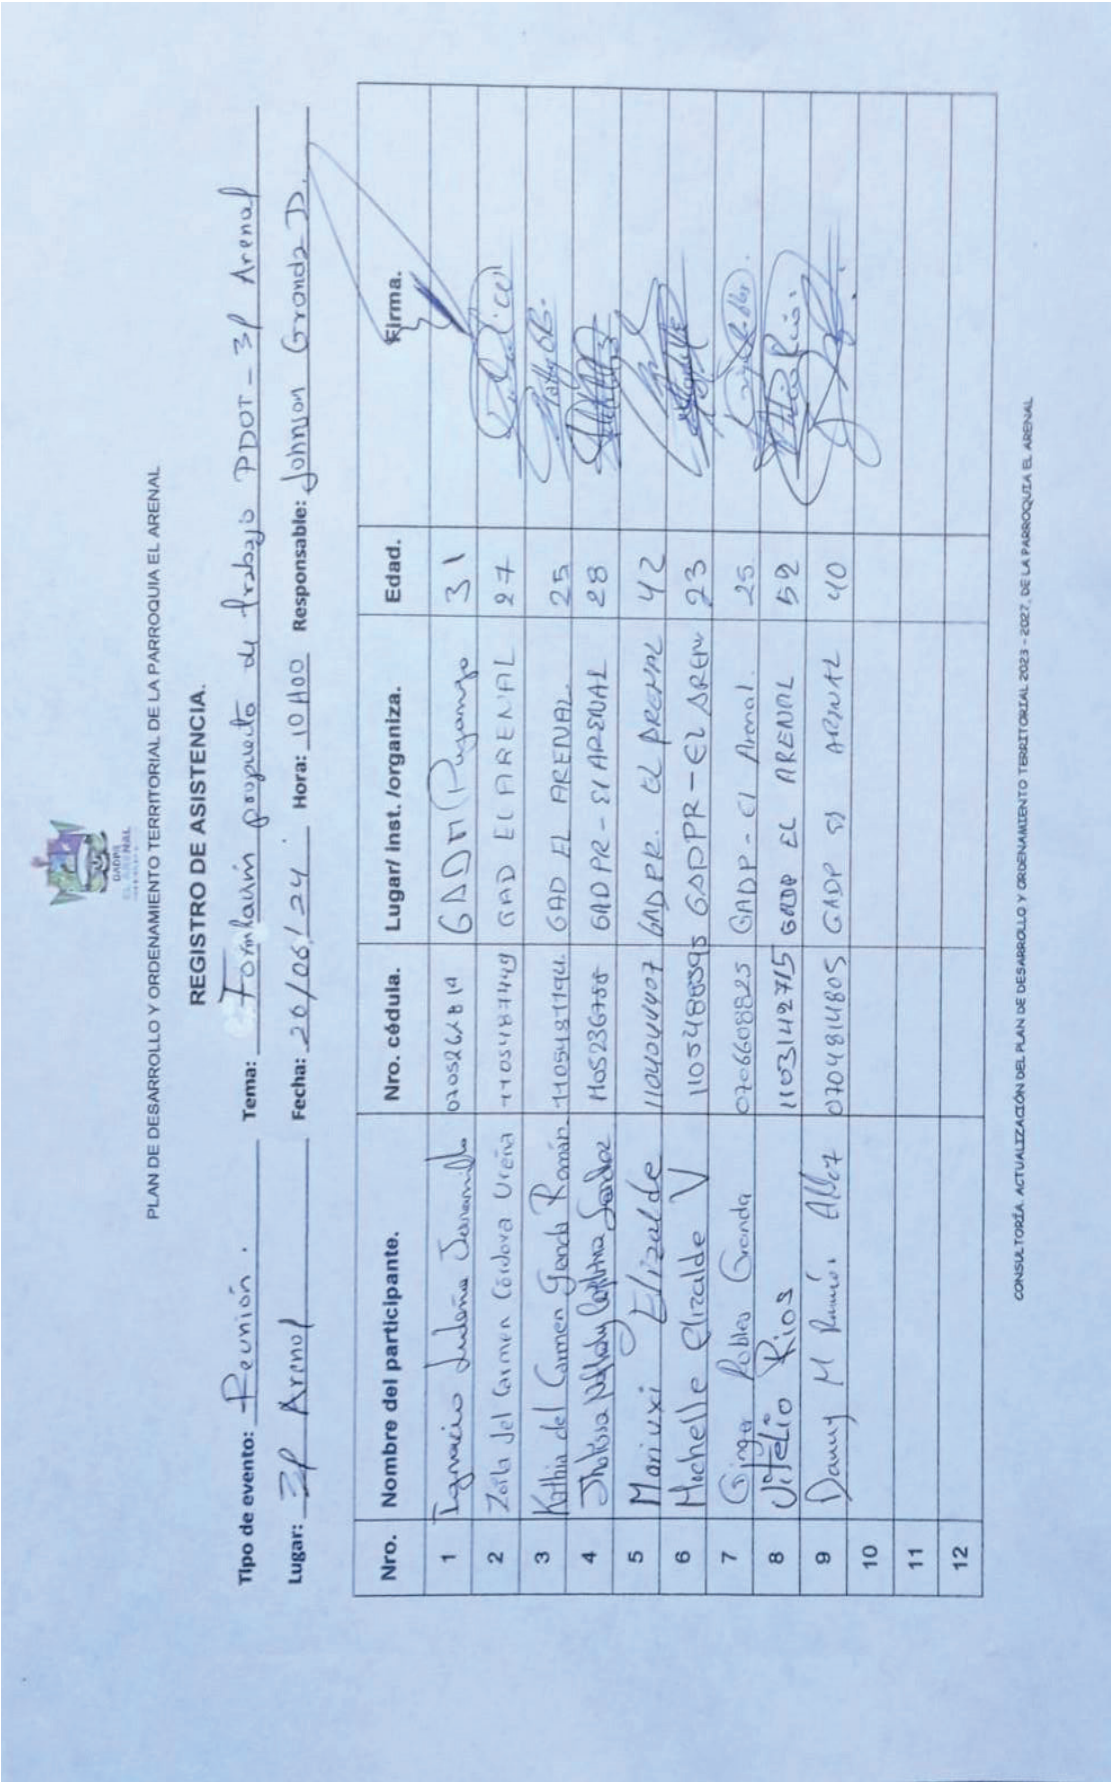 GADPR
EL ARENAL
PLAN DE DESARROLLO Y ORDENAMIENTO TERRITORIAL DE LA PARROQUIA EL ARENAL
REGISTRO DE ASISTENCIA.
Tipo de evento: Reunión. Tema: propuesta de trabajo PDOT - El Arenal
Lugar: El Arenal Fecha: 26/06/24 Hora: 10H00 Responsable: Johnson Granda D.
Nro. Nombre del participante. Nro. cédula. Lugar/ inst. /organiza. Edad. Firma.
1 Ignacio Ludeña Jaramillo GADM Puyango 31
2 Zoila del Carmen Córdova Ureña 1105487449 GAD EL ARENAL 27
3 Kathia del Carmen Granda Román GAD EL ARENAL 25
4 GADPR - El ARENAL 28
5 Mariuxi Elizalde 1104044407 GADPR. EL ARENAL 42
6 Michelle Elizalde V GADPR - EL AREN 23
7 Ginger Robles Granda 0706608825 GADP - El Arenal. 25
8 Vitelio Rios 1103142715 GADP EL ARENAL 52
9 Danny M Ramón 0704814805 GADP El ARENAL 40
10
11
12
CONSULTORÍA. ACTUALIZACIÓN DEL PLAN DE DESARROLLO Y ORDENAMIENTO TERRITORIAL 2023 - 2027, DE LA PARROQUIA EL ARENAL